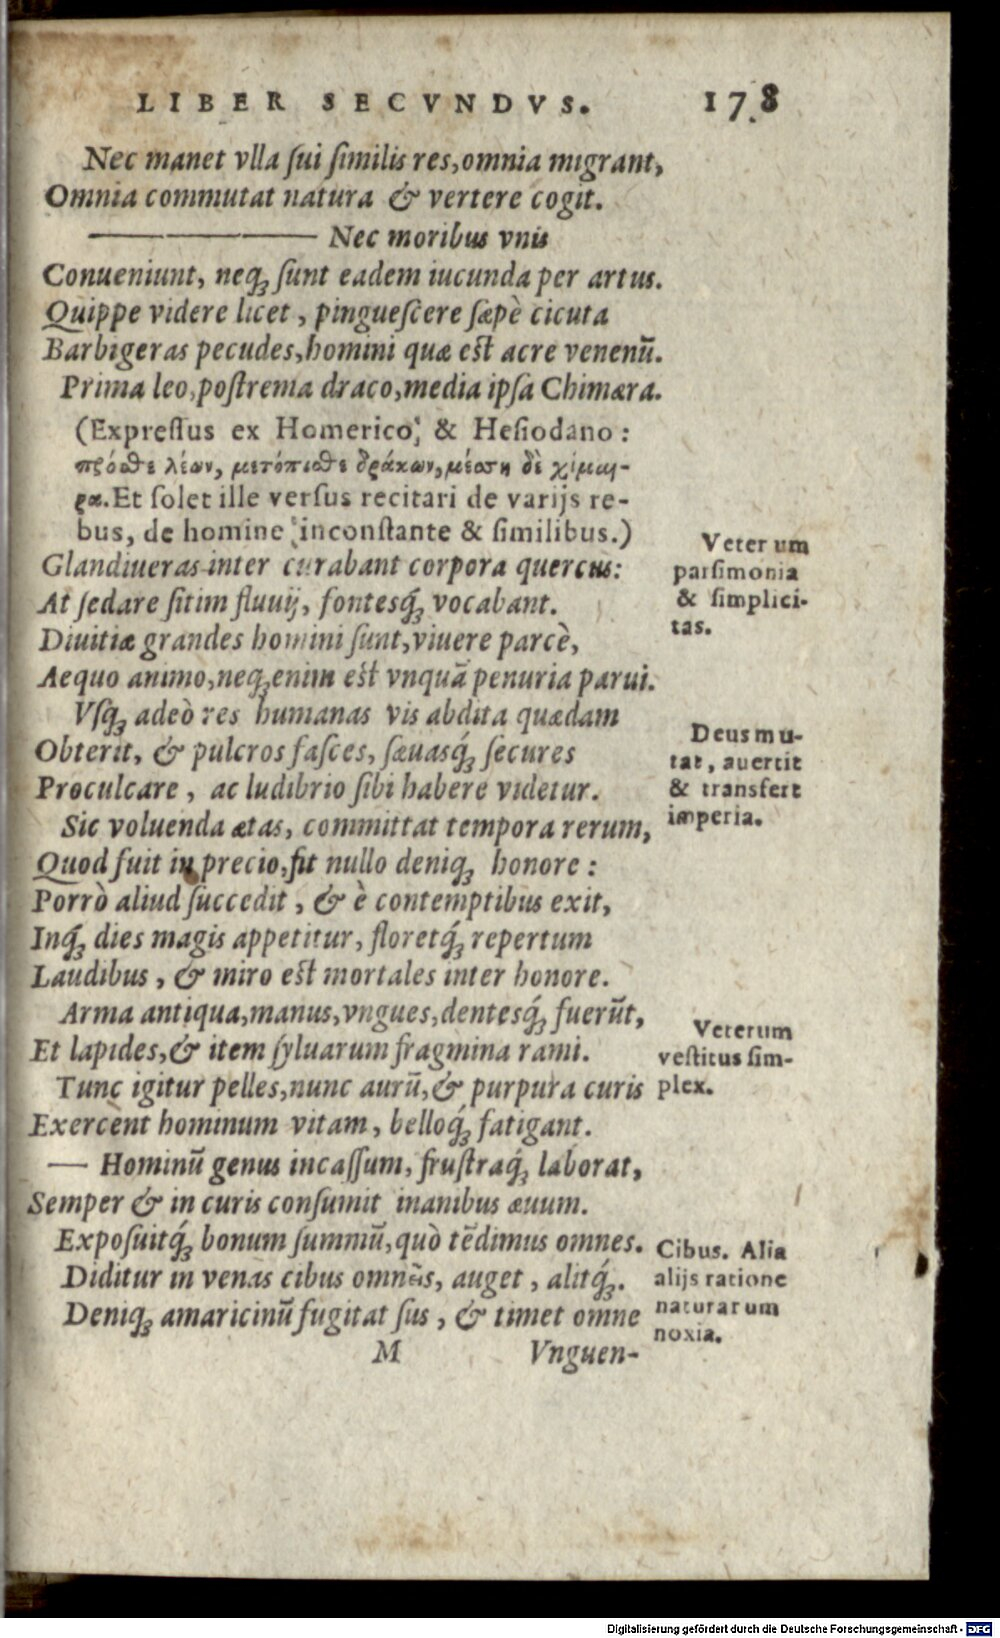 LIBER SECVNDVS. 178
Nec manet vlla ſui ſimilis res, omnia migrant,
Omnia commutat natura & vertere cogit.
——— Nec moribus vnis
Conueniunt, neq́; ſunt eadem iucunda per artus.
Quippe videre licet, pingueſcere ſæpè cicuta
Barbigeras pecudes, homini quæ eſt acre venenū.
Prima leo, poſtrema draco, media ipſa Chimæra.
(Expreſſus ex Homerico, & Heſiodano:
πρόσθε λέων, μετόπισθε δράκων, μέσση δὲ χίμαι-
ρα. Et ſolet ille verſus recitari de varijs re-
bus, de homine inconſtante & ſimilibus.)
Glandiueras inter curabant corpora quercus:
At ſedare ſitim fluuij, fontesq́; vocabant.
Diuitiæ grandes homini ſunt, viuere parcè,
Aequo animo, neq; enim eſt vnquā penuria parui.
Vſq; adeò res humanas vis abdita quædam
Obterit, & pulcros faſces, ſæuasq́; ſecures
Proculcare, ac ludibrio ſibi habere videtur.
Sic voluenda ætas, committat tempora rerum,
Quod fuit in precio, fit nullo deniq; honore:
Porrò aliud ſuccedit, & è contemptibus exit,
Inq́; dies magis appetitur, floretq́; repertum
Laudibus, & miro eſt mortales inter honore.
Arma antiqua, manus, vngues, dentesq́; fuerūt,
Et lapides, & item ſyluarum fragmina rami.
Tunc igitur pelles, nunc aurū, & purpura curis
Exercent hominum vitam, belloq́; fatigant.
— Hominū genus incaſſum, fruſtraq́; laborat,
Semper & in curis conſumit inanibus æuum.
Expoſuitq́; bonum ſummū, quò tēdimus omnes.
Diditur in venas cibus omnes, auget, alitq́;.
Deniq; amaricinū fugitat ſus, & timet omne
M Vnguen-
Veterum
parſimonia
& ſimplici-
tas.
Deus mu-
tat, auertit
& transfert
imperia.
Veterum
veſtitus ſim-
plex.
Cibus. Alia
alijs ratione
naturarum
noxia.
Digitalisierung gefördert durch die Deutsche Forschungsgemeinschaft - DFG